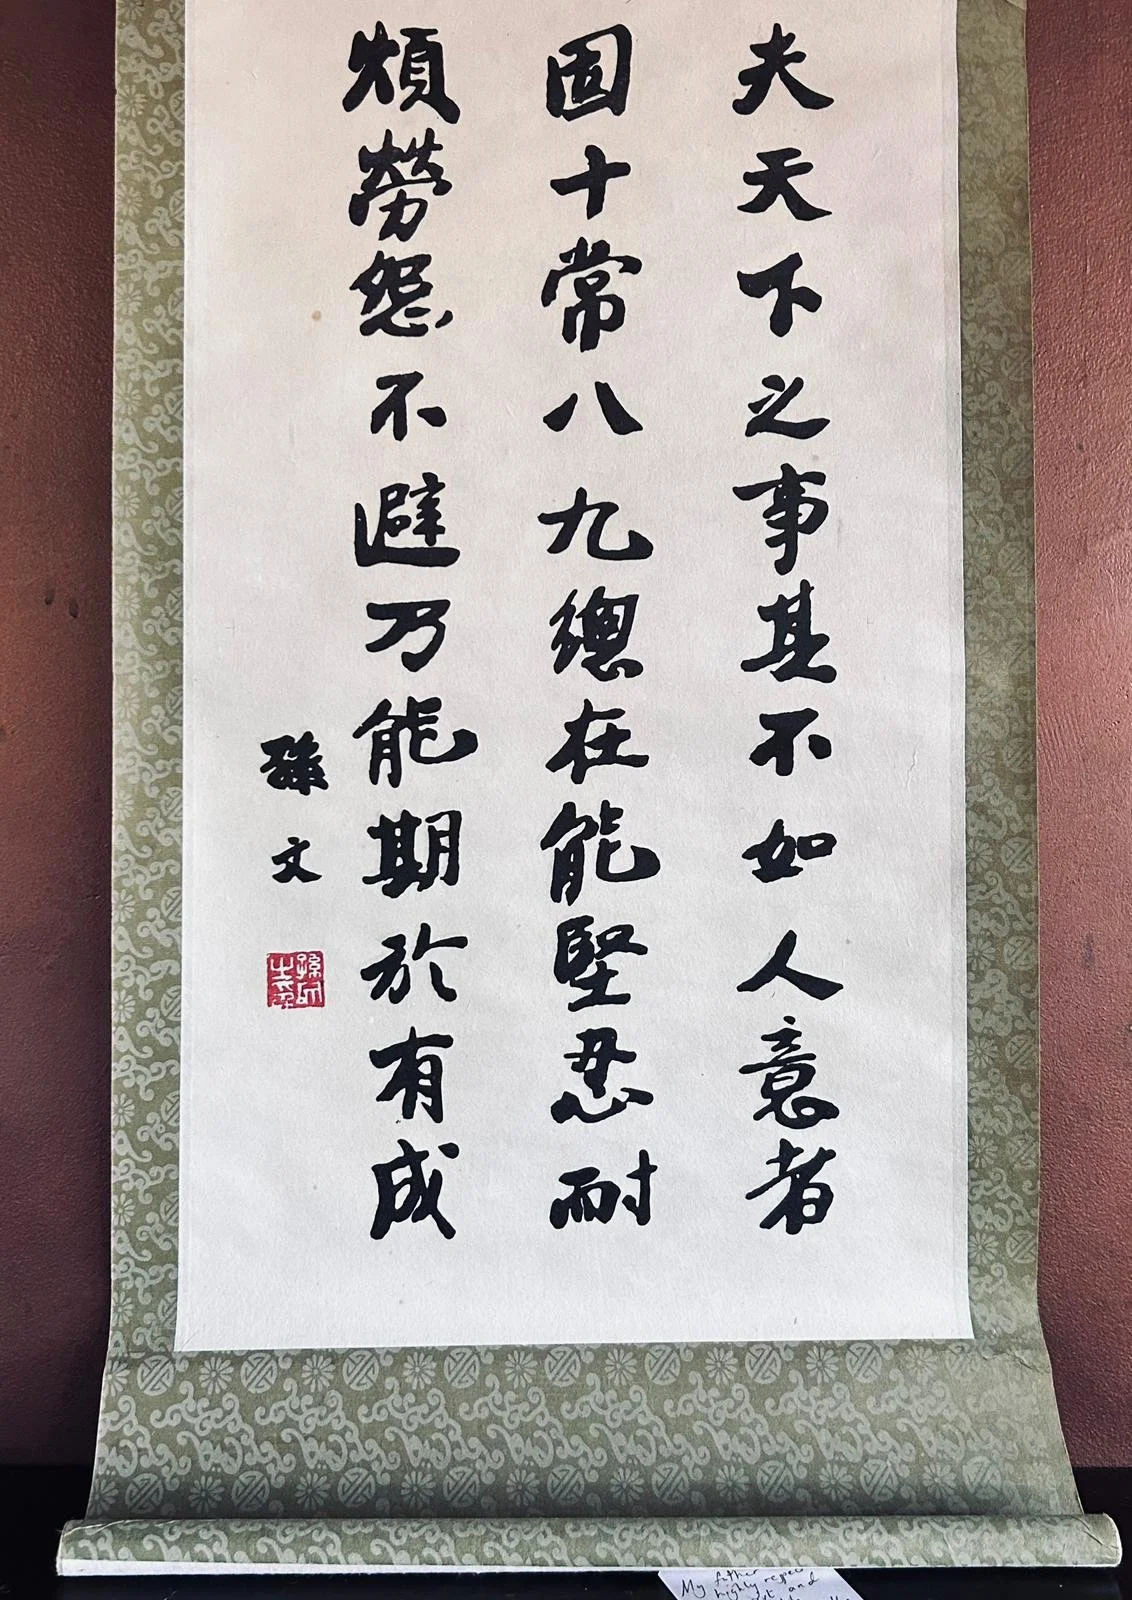 夫天下之事其不如人意者
固十常八九總在能堅忍耐
煩勞怨不避乃能期於有成
孫文
孫文之印
My father
highly respec
and